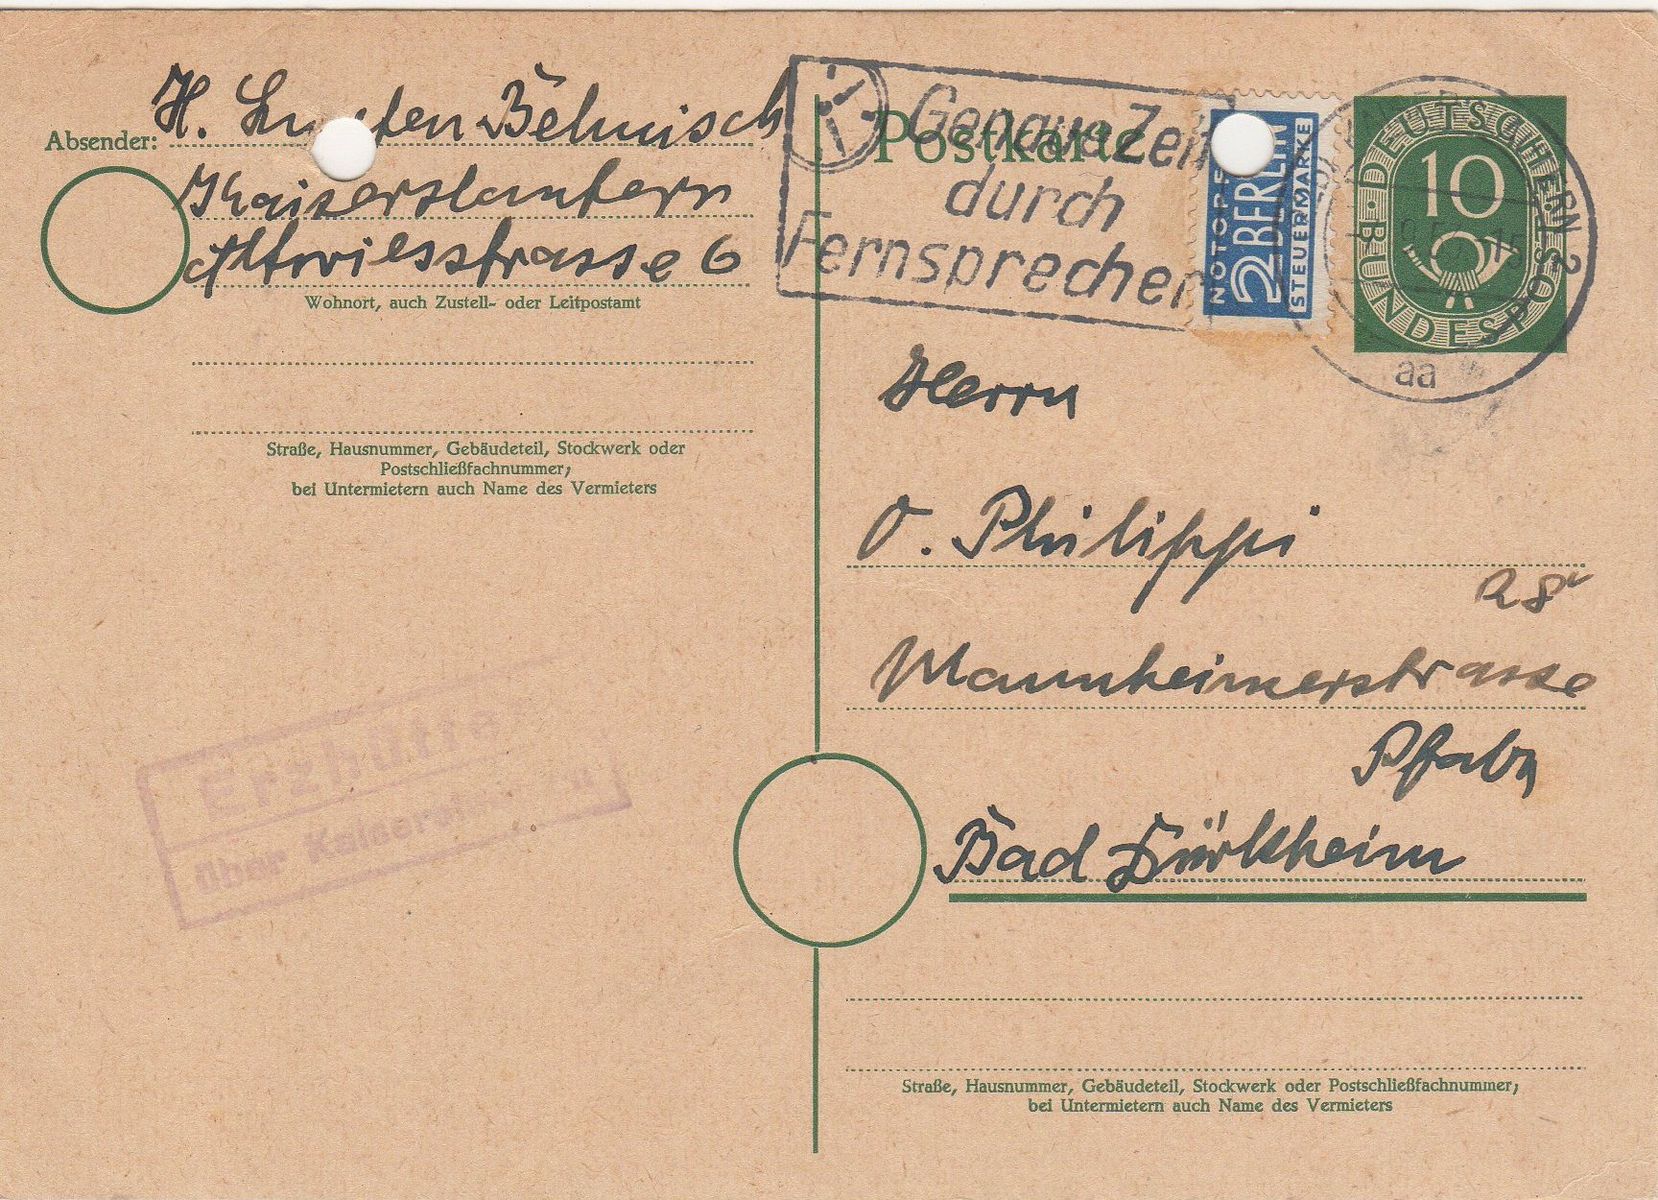 Absender: H. Böhmisch
Kaiserslautern
6
Wohnort, auch Zustell- oder Leitpostamt
Straße, Hausnummer, Gebäudeteil, Stockwerk oder
Postschließfachnummer;
bei Untermietern auch Name des Vermieters
Erzhütten
über Kaiserslautern
Postkarte
Genaue Zeit
durch
Fernsprecher
NOTOPFER
2 BERLIN
STEUERMARKE
DEUTSCHE
10
BUNDESPOST
aa
Herrn
O. Philippi
28
Mannheimerstrasse
Pfalz
Bad Dürkheim
Straße, Hausnummer, Gebäudeteil, Stockwerk oder Postschließfachnummer;
bei Untermietern auch Name des Vermieters